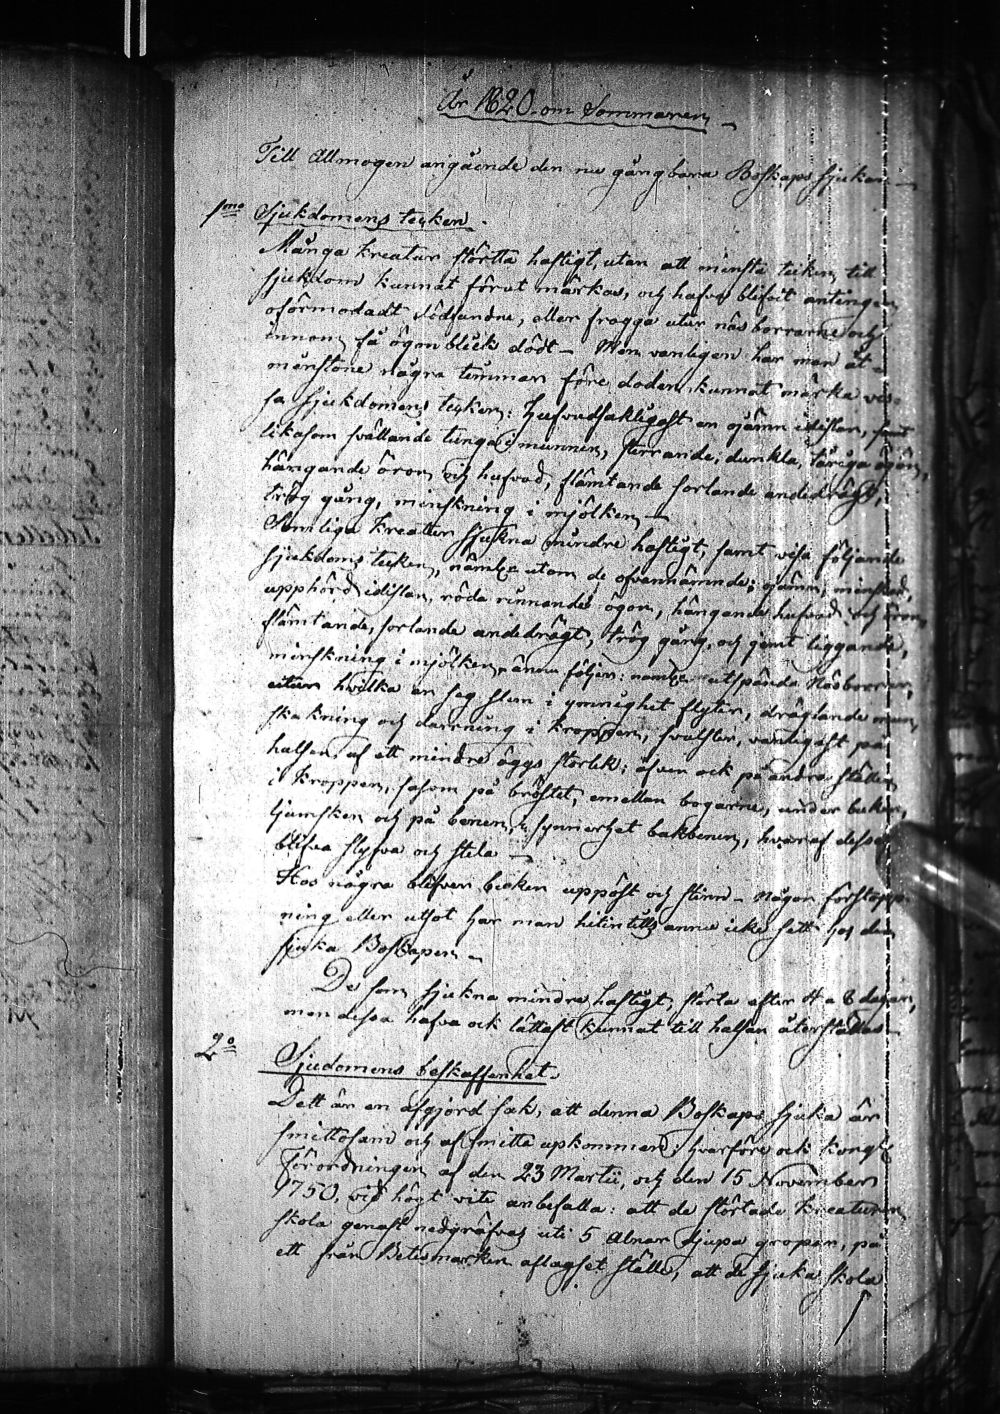 År 1820 om Sommaren
Till Allmogen angående den nu gångbara Boskaps sjukan
1mo Sjukdomens tecken.
Många kreatur störtta haftigt, utan att minsta tecken till
sjukdom kunnat förut märkas, och hafva blifvit antingen
oförmodadt dödfundne, eller fragga utur näsborrarne och
innom få ögonblick dödt – Men vanligen har man åt-
minstone några timmar före döden kunnat märka vis-
sa sjukdomens tecken: hufvudsakligast en ojämn idislan, samt
likasom svällande tunga i munnen, sterrande, dunkla, tåriga ögon,
hängande öron och hufvud, flämtande sorlande andedrägt,
trög gång, minskning i mjölken –
Somliga kreatur sjukna mindre haftigt, samt visa följande
sjukdoms tecken, näml. utom de ofvannämnde; ojämn, minskad,
upphörd idislan, röda rinnande ögon, hängande hufvud och öron,
flämtande, sorlande andedrägt, trög gång, och jemt liggande,
minskning i mjölken, ännu följer: näml. utspända Näsborrar,
utur hvilka en seg slem i ymnighet flyter, dräglande mun,
skakning och darrning i kroppen, svulster, vanligast på
halsen, af ett mindre äggs storlek; äfven ock på andra ställen
i kroppen, såsom på bröstet, emellan bogarne, under buken,
ljumsken och på benen, i synnerhet bakbenen, hvaraf dessa
blifva styfva och stela –
Hos några blifver buken uppöst och stinn – någon förstopp-
ning eller utsot har man hitintills ännu icke sett hos den
sjuka Boskapen –
De som sjukna mindre haftigt, störta efter 4 a 8 dagar,
men dessa hafva ock lättast kunnat till halsan återställas –
2o Sjudomens beskaffenhet.
Dett är en afgjord sak, att denna Boskaps sjuka är
smittosam och af smitta upkommen; hvarföre ock Kongl.
Förordningen af den 23 Martii, och den 15 November
1750, vid högt vite anbefalla: att de störtade kreaturen
skola genast nedgräfvas uti 5 alnar djupa gropar, på
ett från Betesmarken aflägset ställe, att de sjuka skola